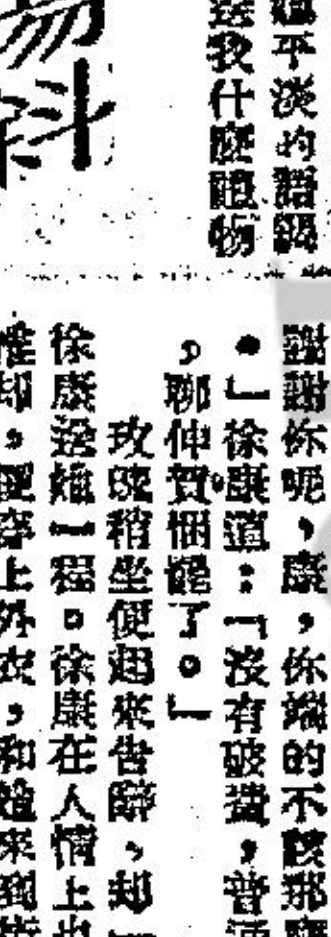 平淡的語調
我什麼禮物
謝謝你呢，康，你端的不該那
。」徐康道：「沒有破費，普通
，聊伸賀悃罷了。」
玫瑰稍坐便起來告辭，却
徐康送她一程。徐康在人情上也
推却，便穿上外衣，和她來到
易科